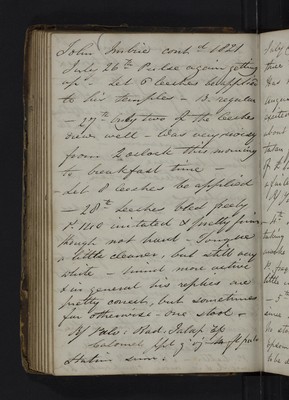 John Imbrie contd. 1821
July 26th Pulse again getting
up - Let 6 leeches be applied
to his temples - B. regular
- 27th only two of the leeches
drew well - Was very noisy
from 2 oclock this morning
to breakfast time -
Let 8 leeches be applied
- 28th Leeches bled freely
P. 140 irritated & pretty firm
though not hard - Tongue
a little cleaner, but still very
white - mind more active
& in general his replies are
pretty correct, but sometimes
far otherwise - one stool
Pulv. Rad. Jalap
Calomel
Statim sum.